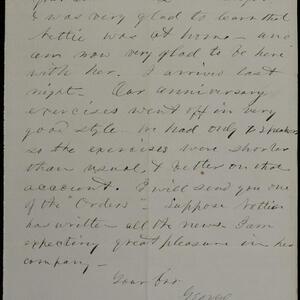 I was very glad to learn that
Nettie was at home - and
am now very glad to be here
with her. I arrived last
night. Our anniversary
exercises went off in very
good style - we had only 10 speakers
so the exercises were shorter
than usual, & better on that
account. I will send you one
of the "Orders" - Suppose Nettie
has written all the news. I am
expecting great pleasure in her
company -
Your bro.
George